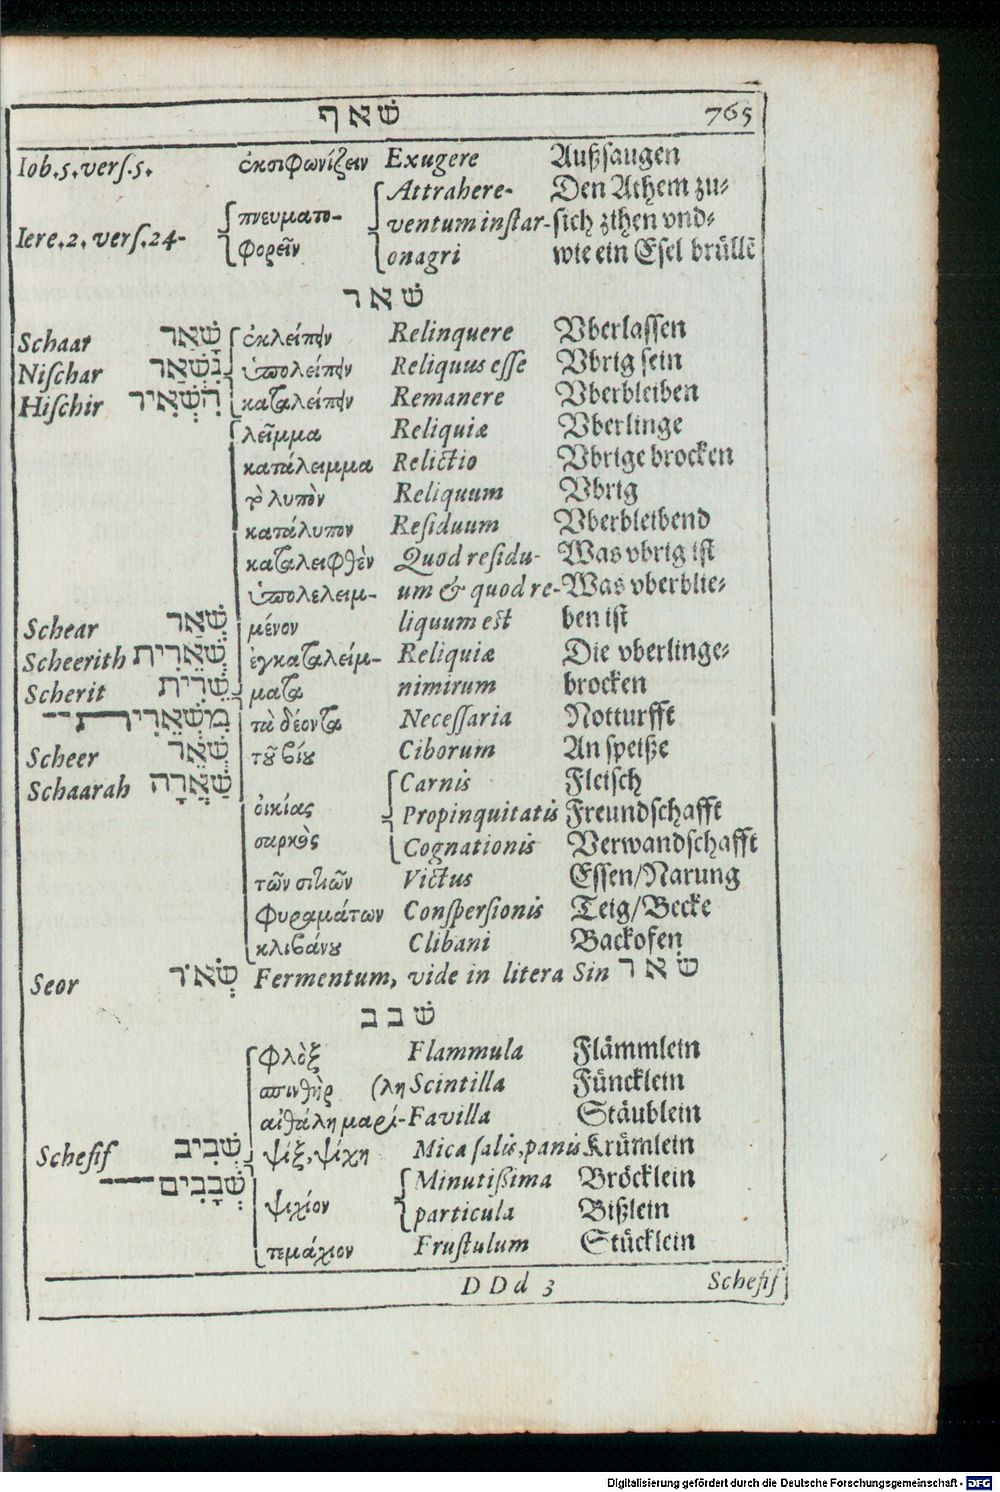 שׁאף 765
Iob.5.vers.5. ἐκσιφωνίζειν Exugere Außsaugen
Attrahere- Den Athem zu-
Iere.2.vers.24- πνευματο- ventum instar- sich zihen vnd-
φορεῖν onagri wie ein Esel brüllē
שׁאר
Schaar שָׁאַר ἐκλείπην Relinquere Vberlassen
Nischar נִשְׁאַר ὑπολείπην Reliquus esse Vbrig sein
Hischir הִשְׁאִיר καταλείπην Remanere Vberbleiben
λεῖμμα Reliquiæ Vberlinge
κατάλειμμα Relictio Vbrige brocken
τὸ λυπὸν Reliquum Vbrig
κατάλυπον Residuum Vberbleibend
καταλειφθὲν Quod residu- Was vbrig ist
ὑπολελειμ- um & quod re- Was vberblie-
Schear שְׁאַר μένον liquum est ben ist
Scheerith שְׁאֵרִית ἐγκαταλείμ- Reliquiæ Die vberlinge-
Scherit שֵׁרִית ματα nimirum brocken
מִשְׁאֵרִית-- τὰ δέοντα Necessaria Notturfft
Scheer שְׁאֵר τοῦ βίου Ciborum An speiße
Schaarah שַׁאֲרָה Carnis Fleisch
οἰκίας Propinquitatis Freundschafft
σαρκὸς Cognationis Verwandschafft
τῶν σιτιῶν Victus Essen/Narung
φυραμάτων Conspersionis Teig/Becke
κλιβάνου Clibani Backofen
Seor שְׂאֹר Fermentum, vide in litera Sin שׂאר
שׁבב
φλὸξ Flammula Flämmlein
σπινθὴρ (λη Scintilla Füncklein
αἰθάλη μαρί- Favilla Stäublein
Schefif שְׁבִיב ψίξ, ψίχη Mica salis, panis Krümlein
שְׁבָבִים--- Minutißima Bröcklein
ψιχίον particula Bißlein
τεμάχιον Frustulum Stücklein
DDd 3 Schefif
Digitalisierung gefördert durch die Deutsche Forschungsgemeinschaft - DFG